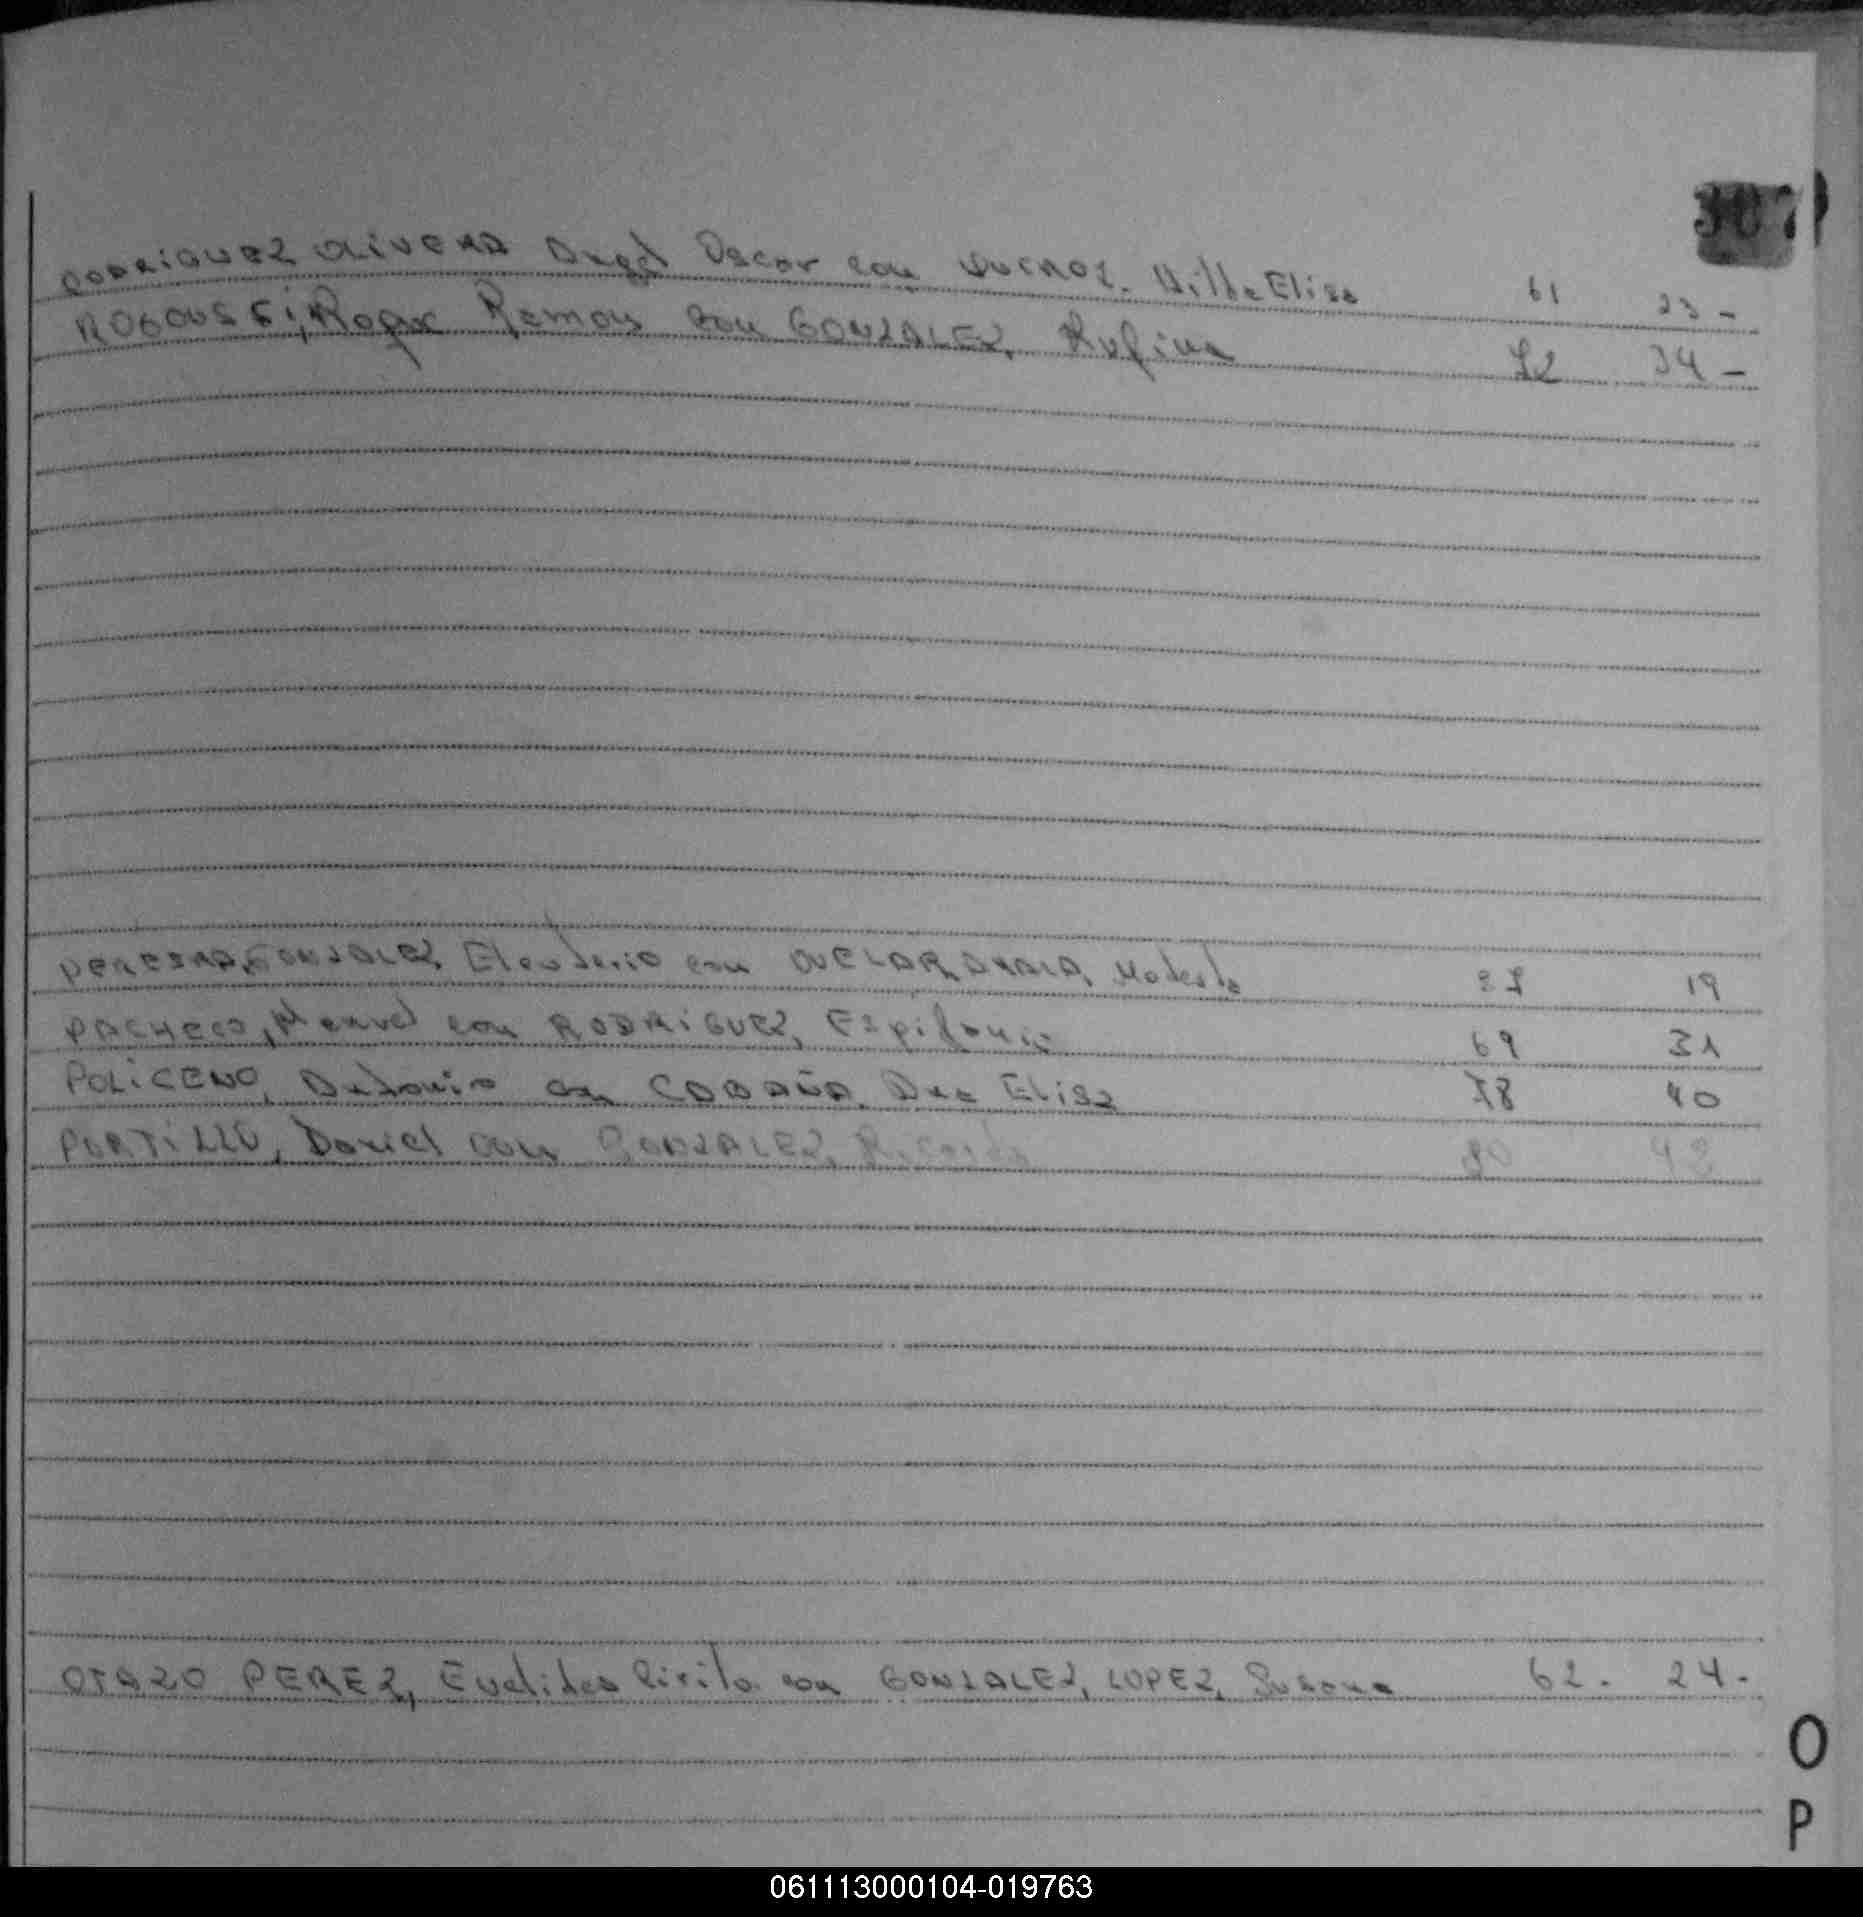 307
RODRIGUEZ OLIVERA Angel Oscar con Hilda Elisa 61 23 -
ROGOUSSI, Roger Ramon con GONZALEZ, Rufina 72 34 -
PEREIRA, GONZALEZ, Eleuterio con AYALA, Modesta 37 19
PACHECO, Manuel con RODRIGUEZ, Espifania 69 31
POLICENO, Antonio con CABAÑA, Ana Elisa 78 40
PORTILLO, Daniel con GONZALEZ, Ricarda 80 42
OTAZO PEREZ, Euclides Cirilo con GONZALEZ, LOPEZ, Susana 62. 24.
O
P
061113000104-019763